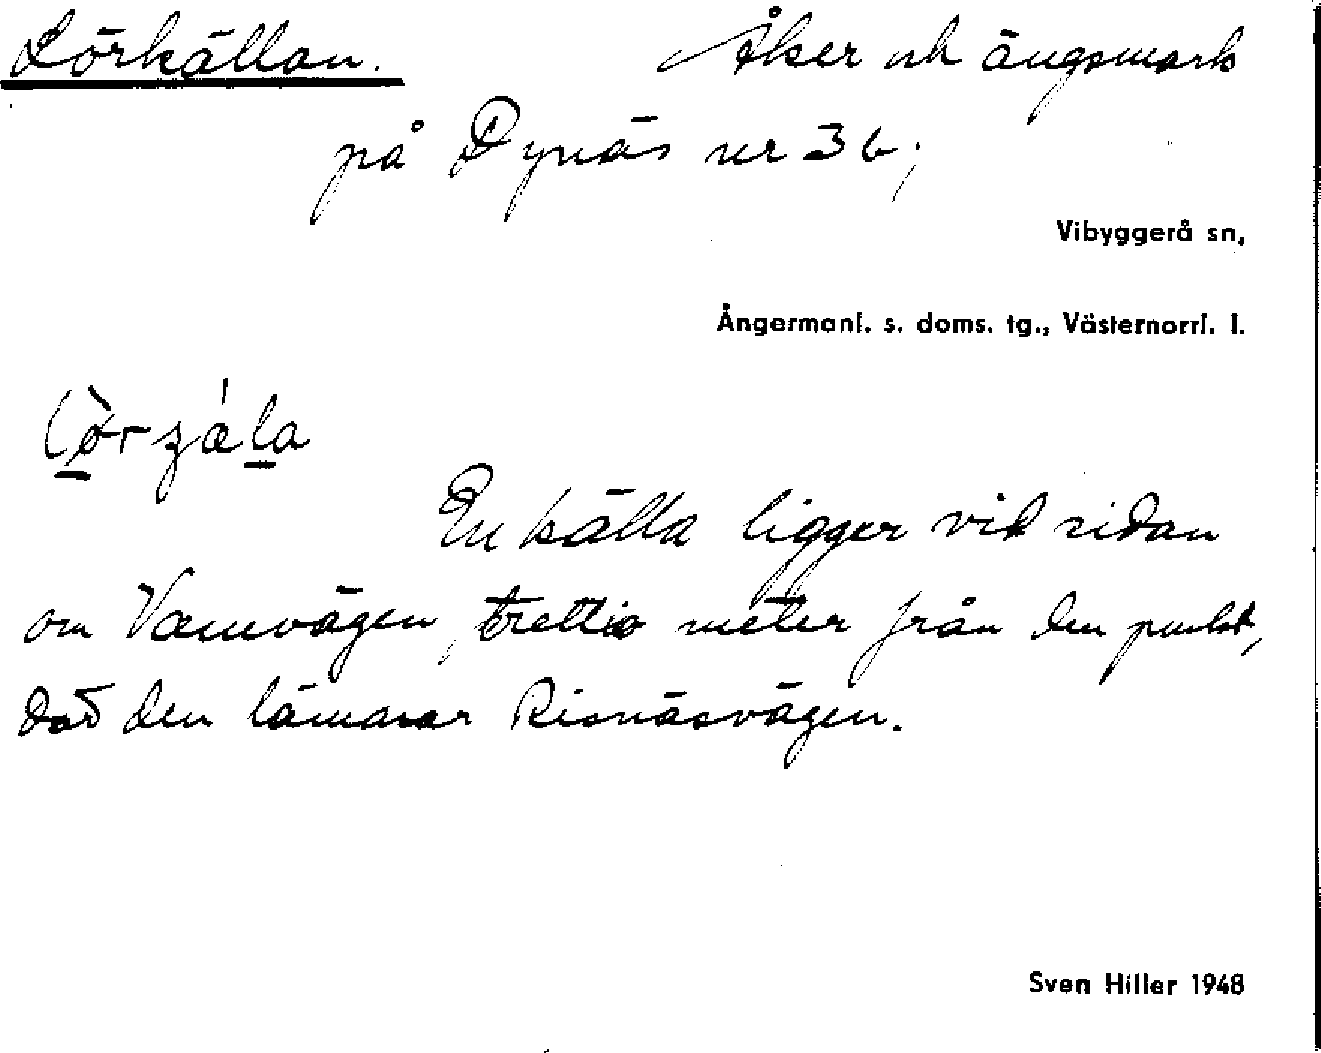 Lörkällan. Åker och ängsmark
på Dynäs nr 36;
Vibyggerå sn,
Ångermanl. s. doms. tg., Västernorrl. l.
En källa ligger vid sidan
om Vamvägen, trettio meter från den punkt,
där den lämnar Risnäsvägen.
Sven Hiller 1948